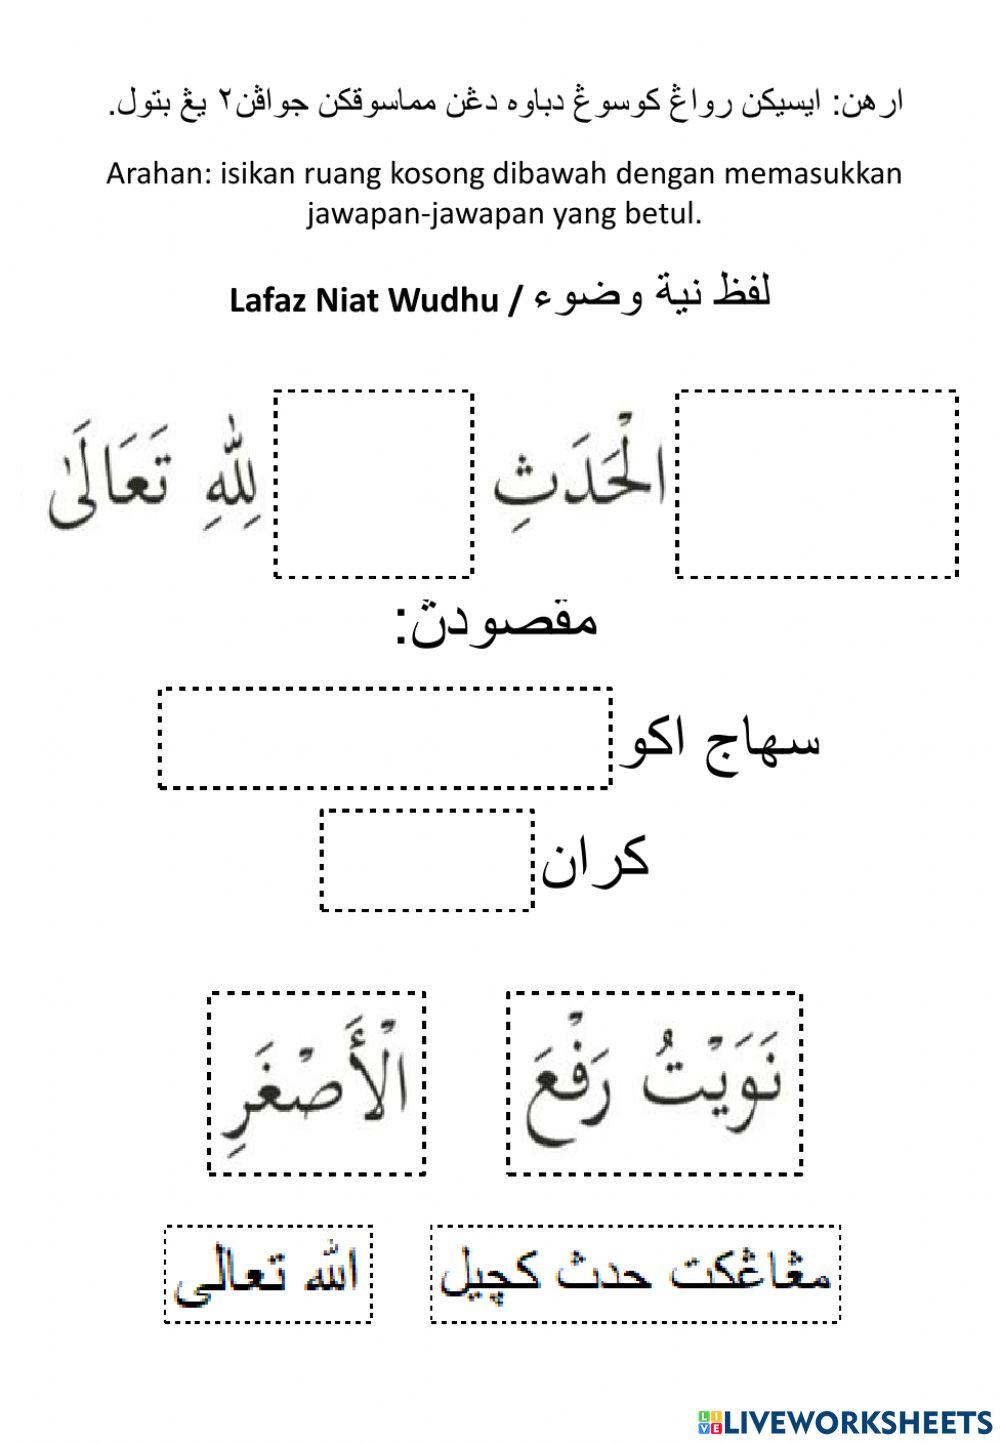 ارهن: ايسيكن رواڠ كوسوڠ دباوه دڠن مماسوقكن جواڤن٢ يڠ بتول.
Arahan: isikan ruang kosong dibawah dengan memasukkan
jawapan-jawapan yang betul.
Lafaz Niat Wudhu / لفظ نية وضوء
الْحَدَثِ لِلّٰهِ تَعَالَىٰ
مقصودڽ:
سهاج اكو
كران
نَوَيْتُ رَفْعَ الْأَصْغَرِ
مڠاڠكت حدث كچيل الله تعالى
LIVEWORKSHEETS